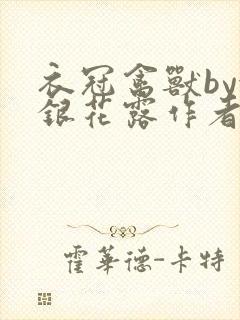 衣冠禽獸by
銀花露作者
霍華德-卡特